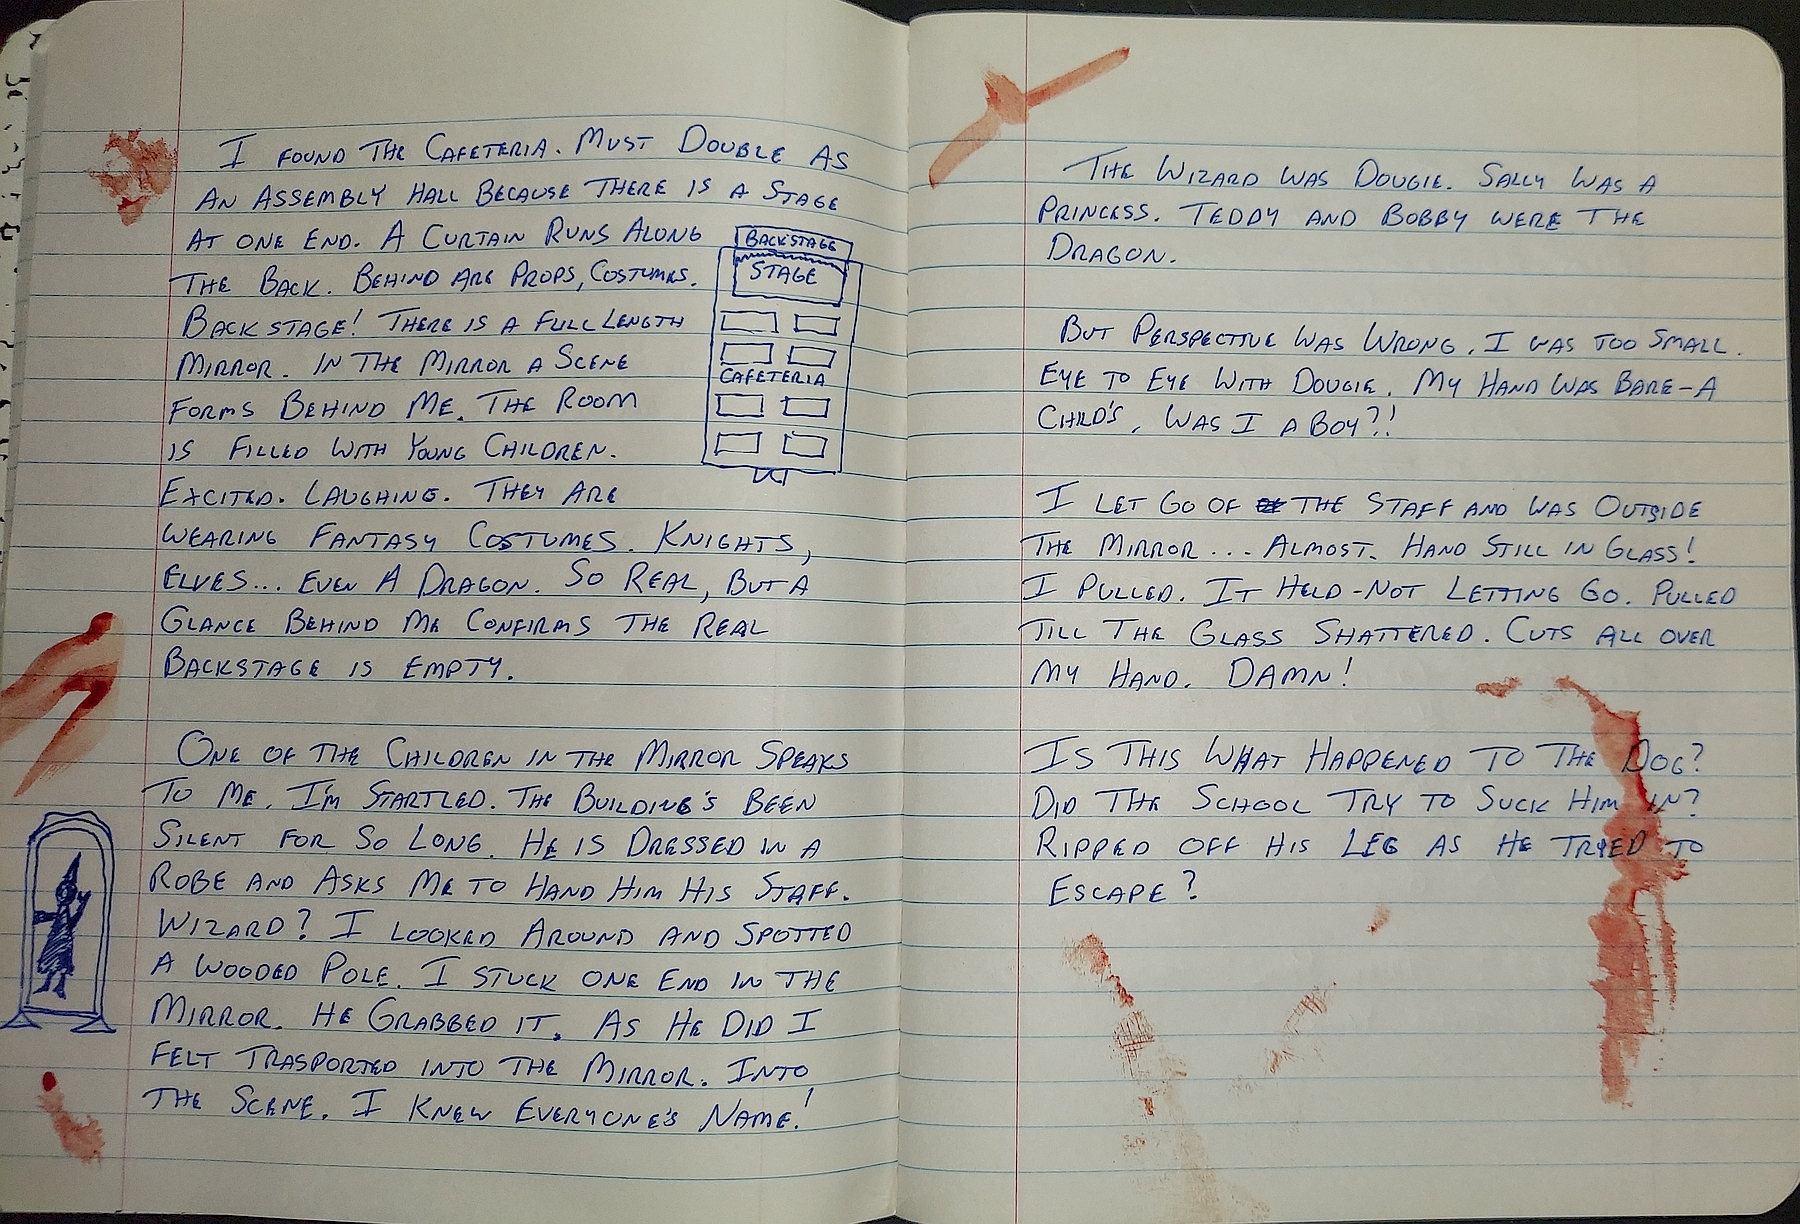 I FOUND THE CAFETERIA. MUST DOUBLE AS
AN ASSEMBLY HALL BECAUSE THERE IS A STAGE
AT ONE END. A CURTAIN RUNS ALONG
THE BACK. BEHIND ARE PROPS, COSTUMES.
BACKSTAGE! THERE IS A FULL LENGTH
MIRROR. IN THE MIRROR A SCENE
FORMS BEHIND ME. THE ROOM
IS FILLED WITH YOUNG CHILDREN.
EXCITED. LAUGHING. THEY ARE
WEARING FANTASY COSTUMES. KNIGHTS,
ELVES... EVEN A DRAGON. SO REAL, BUT A
GLANCE BEHIND ME CONFIRMS THE REAL
BACKSTAGE IS EMPTY.
BACKSTAGE
STAGE
CAFETERIA
ONE OF THE CHILDREN IN THE MIRROR SPEAKS
TO ME. I'M STARTLED. THE BUILDING'S BEEN
SILENT FOR SO LONG. HE IS DRESSED IN A
ROBE AND ASKS ME TO HAND HIM HIS STAFF.
WIZARD? I LOOKED AROUND AND SPOTTED
A WOODED POLE. I STUCK ONE END IN THE
MIRROR. HE GRABBED IT. AS HE DID I
FELT TRASPORTED INTO THE MIRROR. INTO
THE SCENE. I KNEW EVERYONE'S NAME!
THE WIZARD WAS DOUGIE. SALLY WAS A
PRINCESS. TEDDY AND BOBBY WERE THE
DRAGON.
BUT PERSPECTIVE WAS WRONG. I WAS TOO SMALL.
EYE TO EYE WITH DOUGIE. MY HAND WAS BARE-A
CHILD'S, WAS I A BOY?!
I LET GO OF THE STAFF AND WAS OUTSIDE
THE MIRROR... ALMOST. HAND STILL IN GLASS!
I PULLED. IT HELD-NOT LETTING GO. PULLED
TILL THE GLASS SHATTERED. CUTS ALL OVER
MY HAND. DAMN!
IS THIS WHAT HAPPENED TO THE DOG?
DID THE SCHOOL TRY TO SUCK HIM IN?
RIPPED OFF HIS LEG AS HE TRYED TO
ESCAPE?